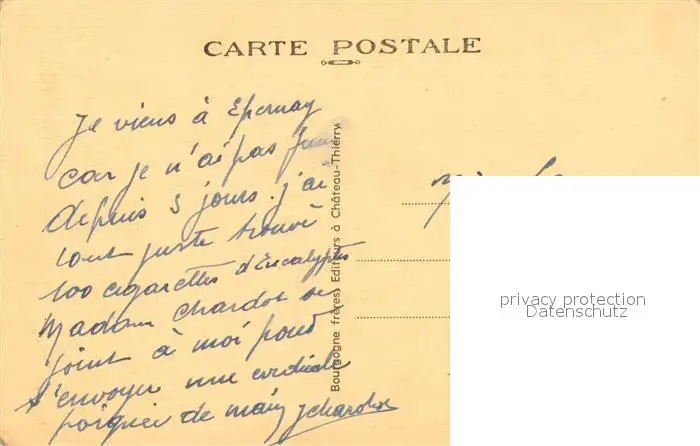 CARTE POSTALE
Je viens à Epernay
car je n'ai pas fumé
depuis 3 jours. j'ai
tout juste trouvé
100 cigarettes d'Eucalyptus
Madame Chardot se
joint à moi pour
t'envoyer une cordiale
poignée de main
Bourgogne frères, Editeurs à Château-Thierry
privacy protection
Datenschutz